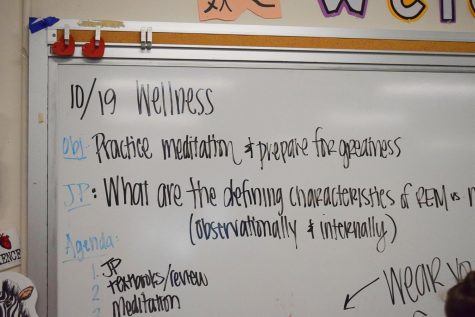 10/19 Wellness
Obj: Practice meditation & prepare for greatness
JP: What are the defining characteristics of REM vs
(observationally & internally)
Agenda:
1 JP
2 textbooks/review
3 Meditation
WEAR